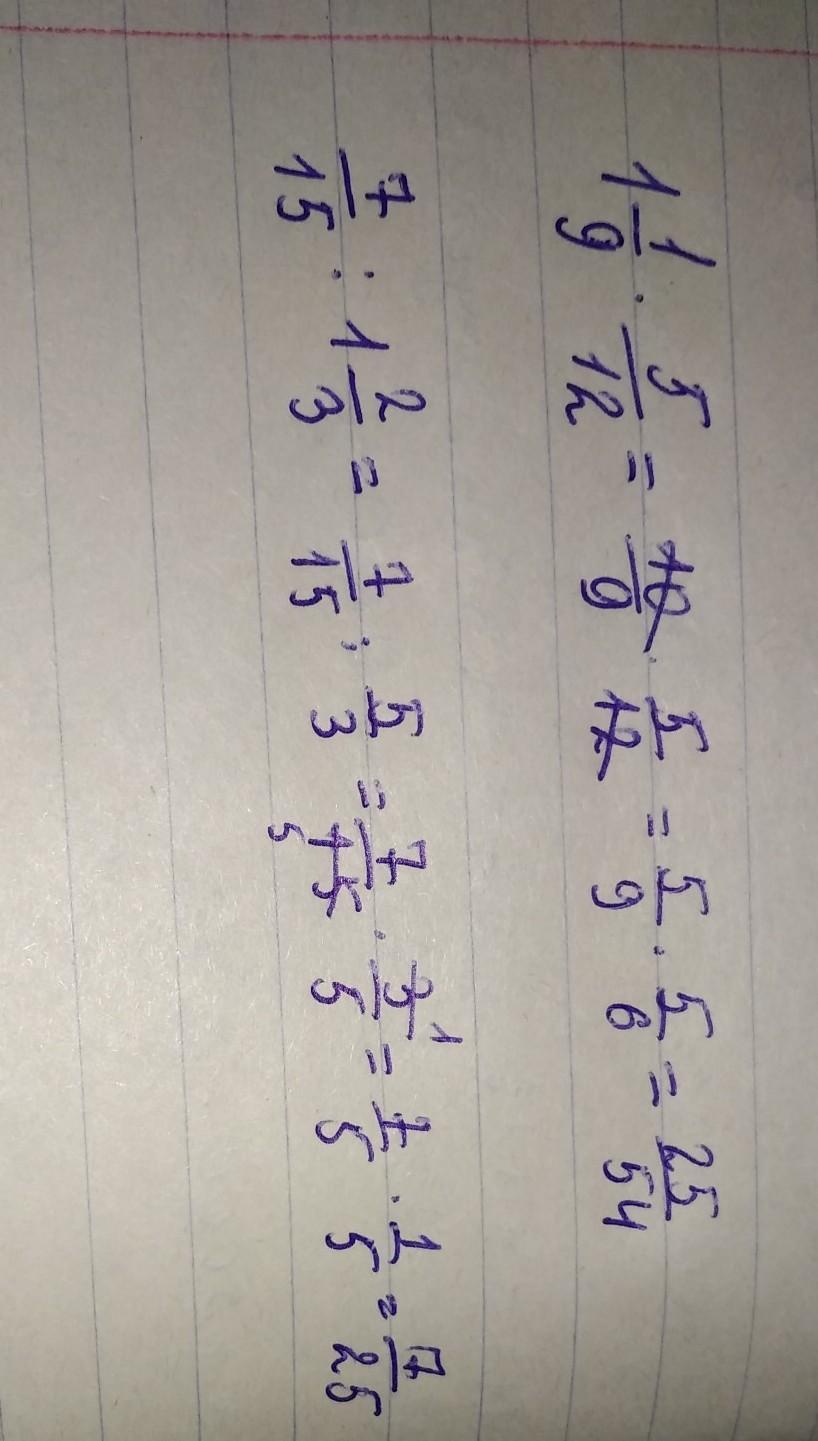 1 1/9 · 5/12 = 10/9 · 5/12 = 5/9 · 5/6 = 25/54
7/15 : 1 2/3 = 7/15 : 5/3 = 7/15 5 · 3/5 1 = 7/5 · 1/5 = 7/25